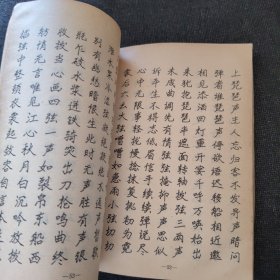 上琵琶声主人忘归客不发寻声暗问
弹者谁琵琶声停欲语迟移船相近邀
相见添酒回灯重开宴千呼万唤始出
来犹抱琵琶半遮面转轴拨弦三两声
未成曲调先有情弦弦掩抑声声思似
诉平生不得志低眉信手续续弹说尽
心中无限事轻拢慢捻抹复挑初为霓
裳后六幺大弦嘈嘈如急雨小弦切切
-52-
难水泉冷涩弦凝绝凝绝不通声暂歇
别有幽愁暗恨生此时无声胜有声银
瓶乍破水浆迸铁骑突出刀枪鸣曲终
收拨当心画四弦一声如裂帛东船西
舫悄无言唯见江心秋月白沉吟放拨
插弦中整顿衣裳起敛容自言本
-53-